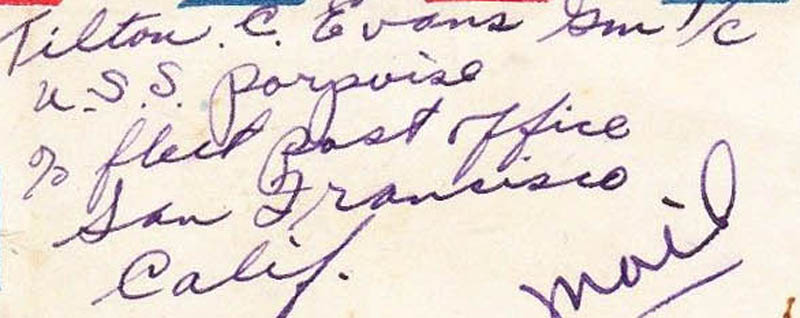 Tilton C. Evans Gm 1/c
U.S.S. Porpoise
c/o fleet post office
San Francisco
Calif.
mail